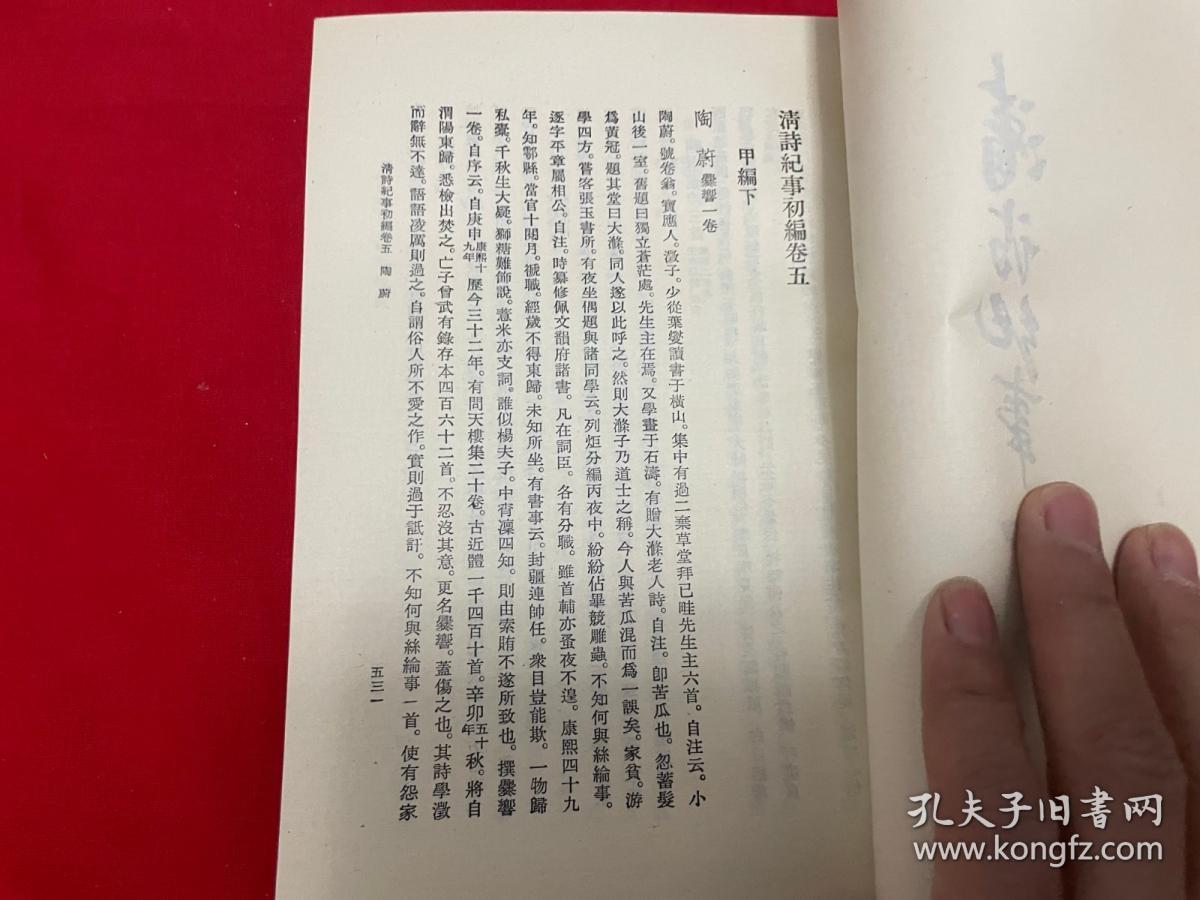 清詩紀事初編卷五
甲編下
陶蔚 爨響一卷
陶蔚。號卷翁。寶應人。澂子。少從葉燮讀書于橫山。集中有過二棄草堂拜已畦先生主六首。自注云。小
山後一室。舊題曰獨立蒼茫處。先生主在焉。又學畫于石濤。有贈大滌老人詩。自注。卽苦瓜也。忽蓄髮
爲黃冠。題其堂曰大滌。同人遂以此呼之。然則大滌子乃道士之稱。今人與苦瓜混而爲一誤矣。家貧。游
學四方。嘗客張玉書所。有夜坐偶題與諸同學云。列炬分編丙夜中。紛紛佔畢競雕蟲。不知何與絲綸事。
逐字平章屬相公。自注。時纂修佩文韻府諸書。凡在詞臣。各有分職。雖首輔亦蚤夜不遑。康熙四十九
年。知鄠縣。當官十閱月。褫職。經歲不得東歸。未知所坐。有書事云。封疆連帥任。衆目豈能欺。一物歸
私橐。千秋生大疑。獅糖難飾說。薏米亦支詞。誰似楊夫子。中宵凜四知。則由索賄不遂所致也。撰爨響
一卷。自序云。自庚申康熙十九年歷今三十二年。有問天樓集二十卷。古近體一千四百十首。辛卯五十年秋。將自
渭陽東歸。悉檢出焚之。亡子曾武有錄存本四百六十二首。不忍沒其意。更名爨響。蓋傷之也。其詩學澂
而辭無不達。語語凌厲則過之。自謂俗人所不愛之作。實則過于詆訶。不知何與絲綸事一首。使有怨家
清詩紀事初編卷五 陶蔚
五三一
孔夫子旧书网
www.kongfz.com